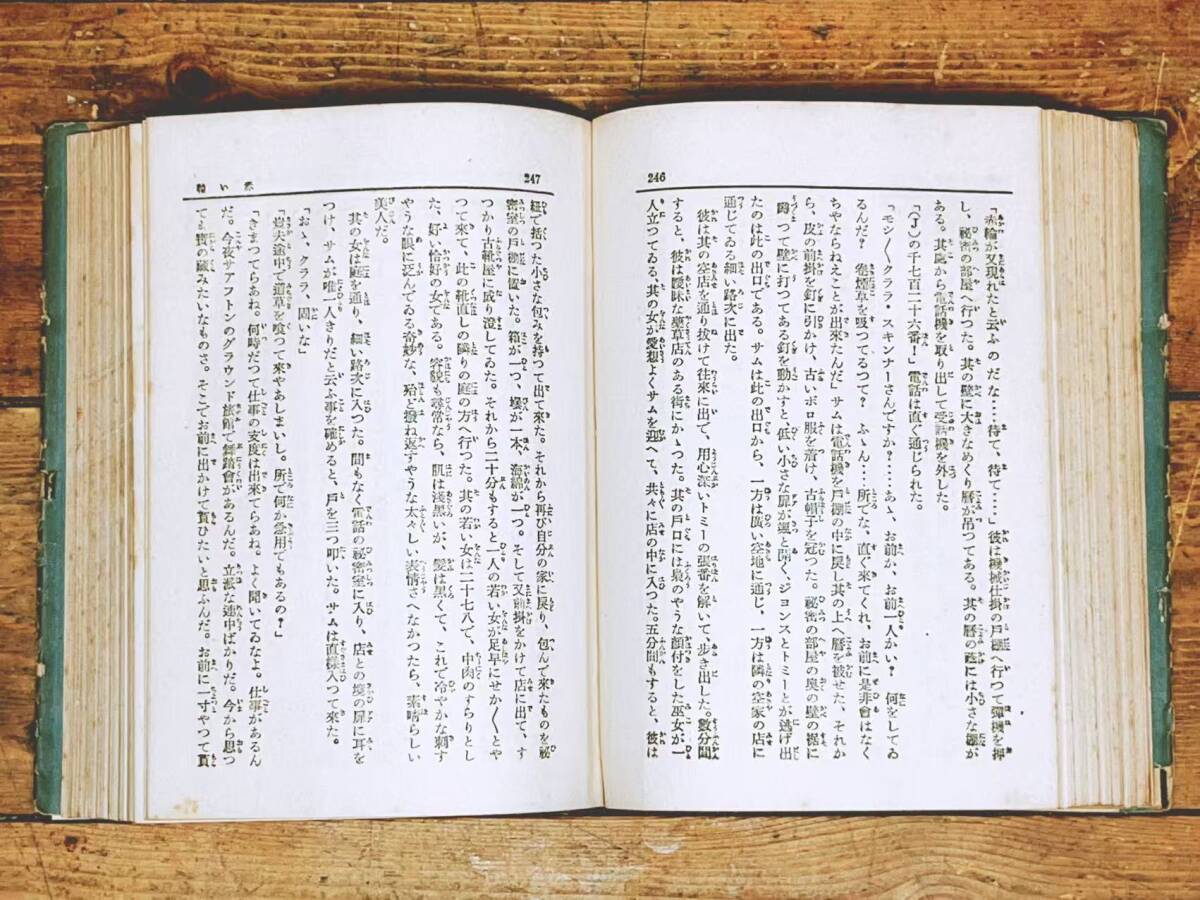 246
「赤輪が又現れたと云ふのだな……待て、待て……」彼は機械仕掛の戸棚へ行つて彈機を押
し、秘密の部屋へ行つた。其の壁に大きなめくり暦が吊つてある。其の暦の蔭には小さな龕が
ある。其處から電話機を取り出して受話機を外した。
「（丁）の千七百二十六番！」電話は直く通じられた。
「モシ〳〵クララ・スキンナーさんですか？……あゝ、お前か、お前一人かい？　何をしてゐ
るんだ？　卷煙草を吸つてるつて？　ふゝん……所でな、直ぐ來てくれ、お前に是非會はなく
ちやならねえことが出來たんだ」サムは電話機を戸棚の中に戻し其の上へ暦を被せた、それか
ら、皮の前掛を釘に引かけ、古いボロ服を着け、古帽子を冠つた。秘密の部屋の奥の壁の裾に
蹲つて壁に打つてある釘を動かすと、低い小さな扉が颯と開くジヨンスとトミーとが逃げ出し
たのは此の出口である。サムは此の出口から、一方は廣い空地に通じ、一方は隣の空家の店に
通じてゐる細い路次に出た。
彼は其の空店を通り抜けて往來に出で、用心深いトミーの張番を解いて、歩き出した。數分間
すると、彼は曖昧な藥草店のある街にかゝつた。其の戸口には梟のやうな顔付をした巫女が一
人立つてゐる、其の女が愛想よくサムを迎へて、共々に店の中に入つた。五分間もすると、彼は
247
紐で括つた小さな包みを持つて出て來た。それから再び自分の家に戻り、包んで來たものを秘
密室の戸棚に置いた。箱が一つ、壜が一本、海綿が一つ。そして又前掛をかけて店に出て、す
つかり古靴屋に成り澄してゐた。それから二十分もすると一人の若い女が足早にせか〳〵とや
つて來て、此の靴直しの隣りの庭の方へ行つた。其の若い女は二十七八で、中肉のすらりとし
た、好い恰好の女である。容貌も尋常なら、肌は淺黒いが、髪は黒くて、これで冷やかな刺す
やうな眼に泛んでゐる奇妙な、殆ど撥ね返すやうな太々しい表情さへなかつたら、素晴らしい
美人だ。
其の女は庭を通り、細い路次に入つた。間もなく電話の秘密室に入り、店との境の扉に耳を
つけ、サムが唯一人きりだと云ふ事を確めると、戸を三つ叩いた。サムは直樣入つて來た。
「おゝ、クララ、固いな」
「貴夫途中で道草を喰つて來やあしまいし。所で何か急用でもあるの？」
「きまつてらあね。何時だつて仕事の支度は出來てらあね。よく聞いてゐなよ。仕事があるん
だ。今夜サフトンのグラウンド旅館で舞踏會があるんだ。立派な連中ばかりだ。今から思つ
ても寶の藏みたいなものさ。そこでお前に出かけて貰ひたいと思ふんだ。お前に一寸やつて貰